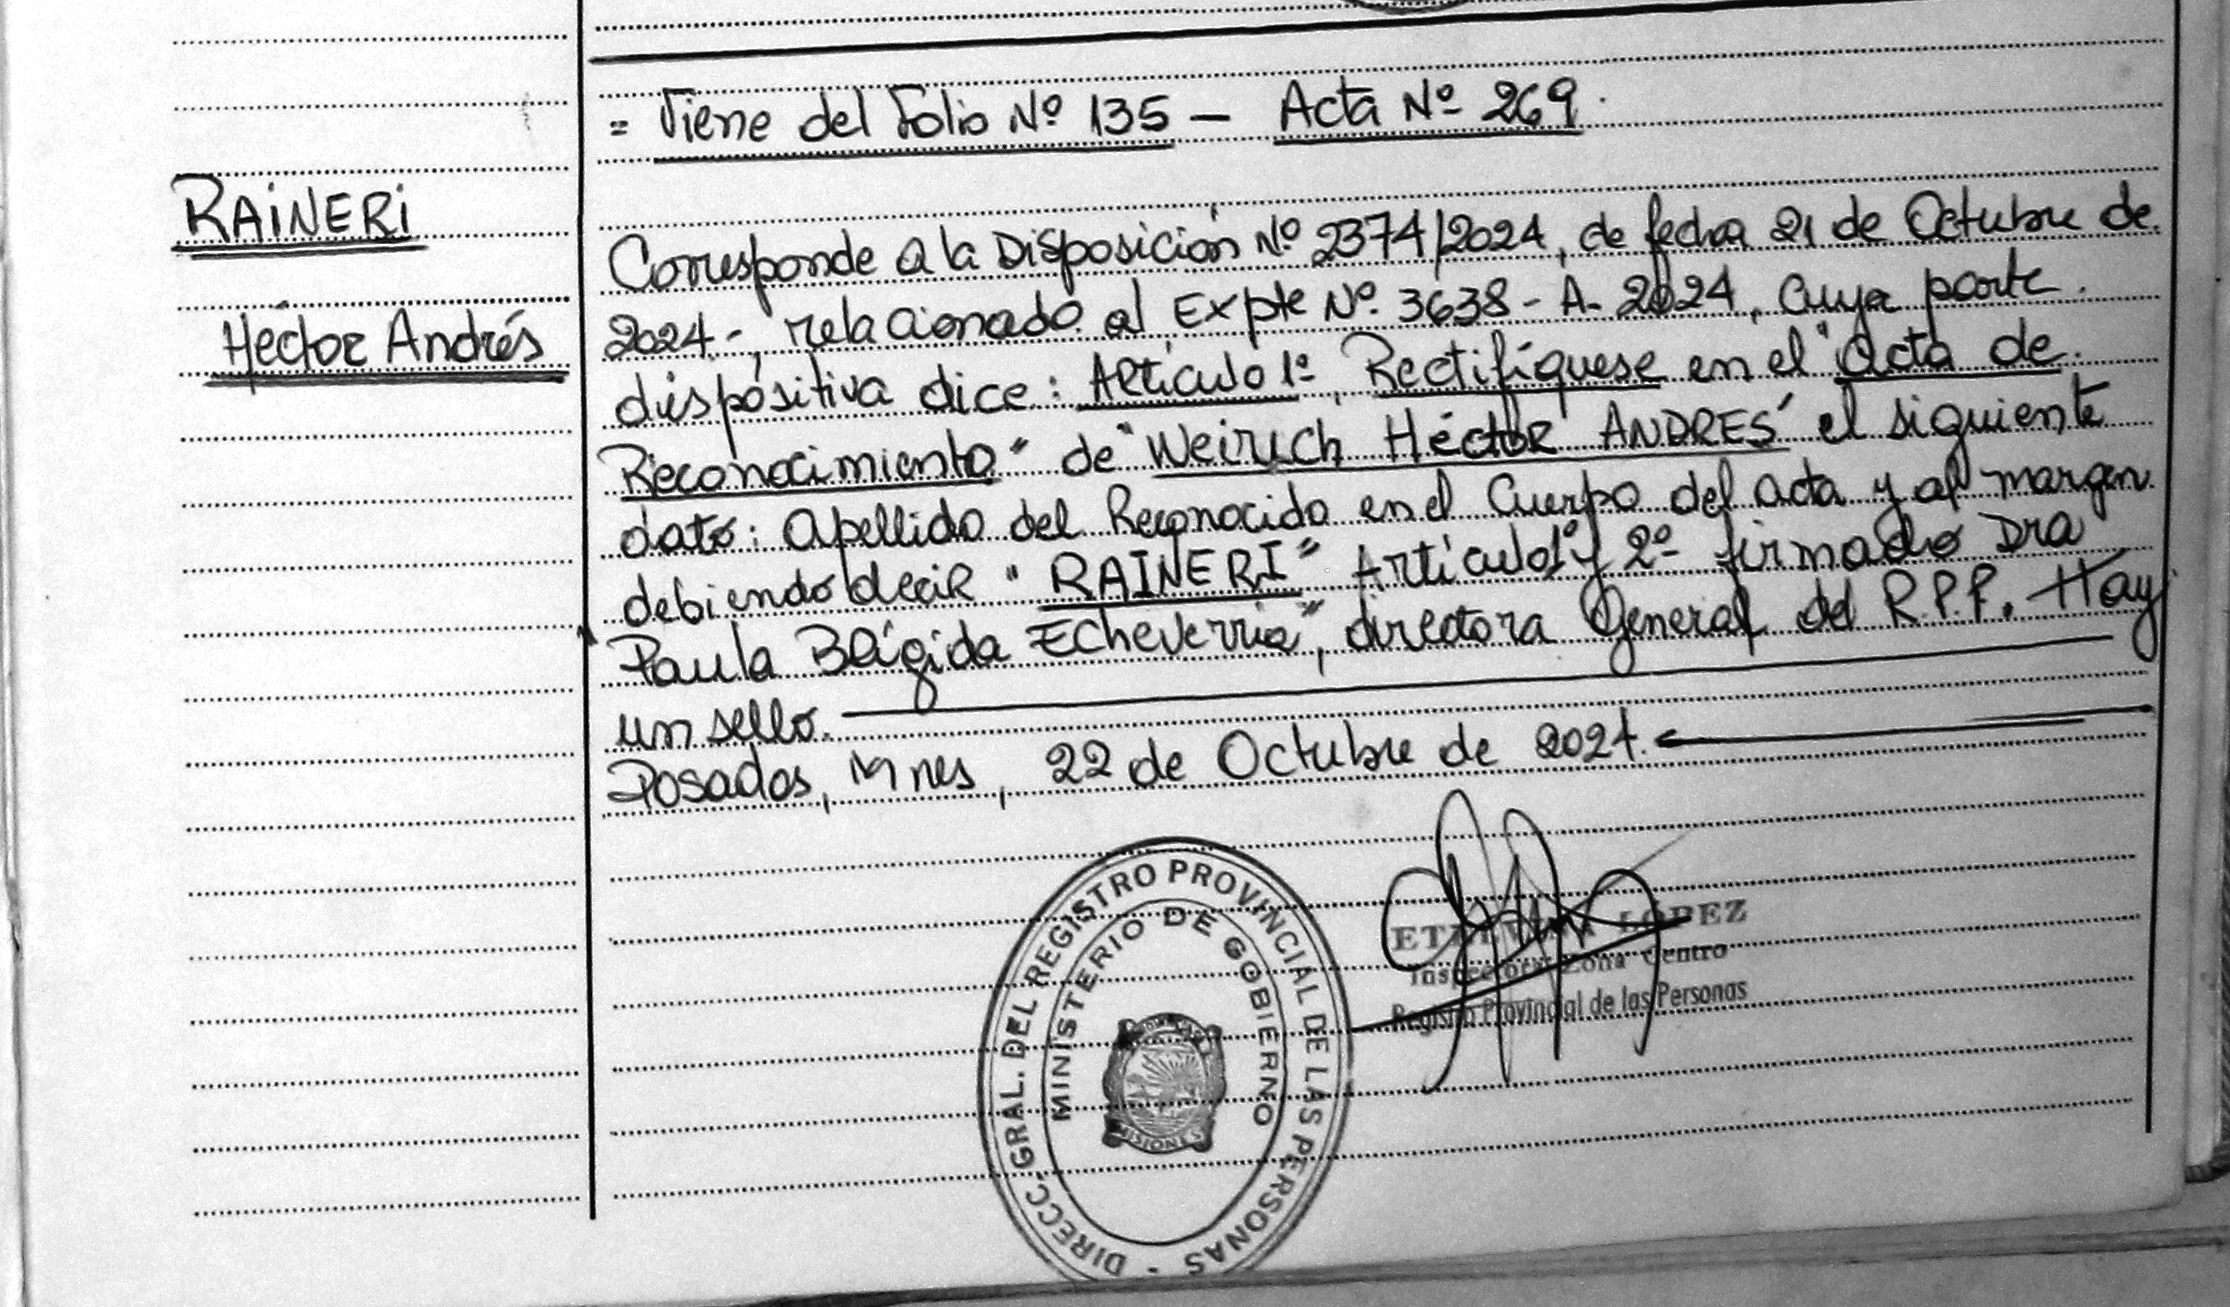 = Viene del Folio Nº 135 - Acta Nº 269.
RAINERI
Héctor Andrés
Corresponde a la Disposición Nº 2374/2024, de fecha 21 de Octubre de
2024-, relacionado al Expte Nº 3638-A-2024, cuya parte
dispositiva dice: Artículo 1º Rectifíquese en el "acta de
Reconocimiento" de "Weiruch Héctor ANDRES" el siguiente
dato: apellido del Reconocido en el Cuerpo del acta y al margen
debiendo decir "RAINERI" Artículo 1º y 2º firmado Dra
Paula Brígida Echeverria", directora General del R.P.P. Hay
un sello.
Posadas, Mnes, 22 de Octubre de 2024.
DIRECC. GRAL. DEL REGISTRO PROVINCIAL DE LAS PERSONAS -
MINISTERIO DE GOBIERNO
MISIONES
LÓPEZ
Inspectora Zona Centro
Registro Provincial de las Personas